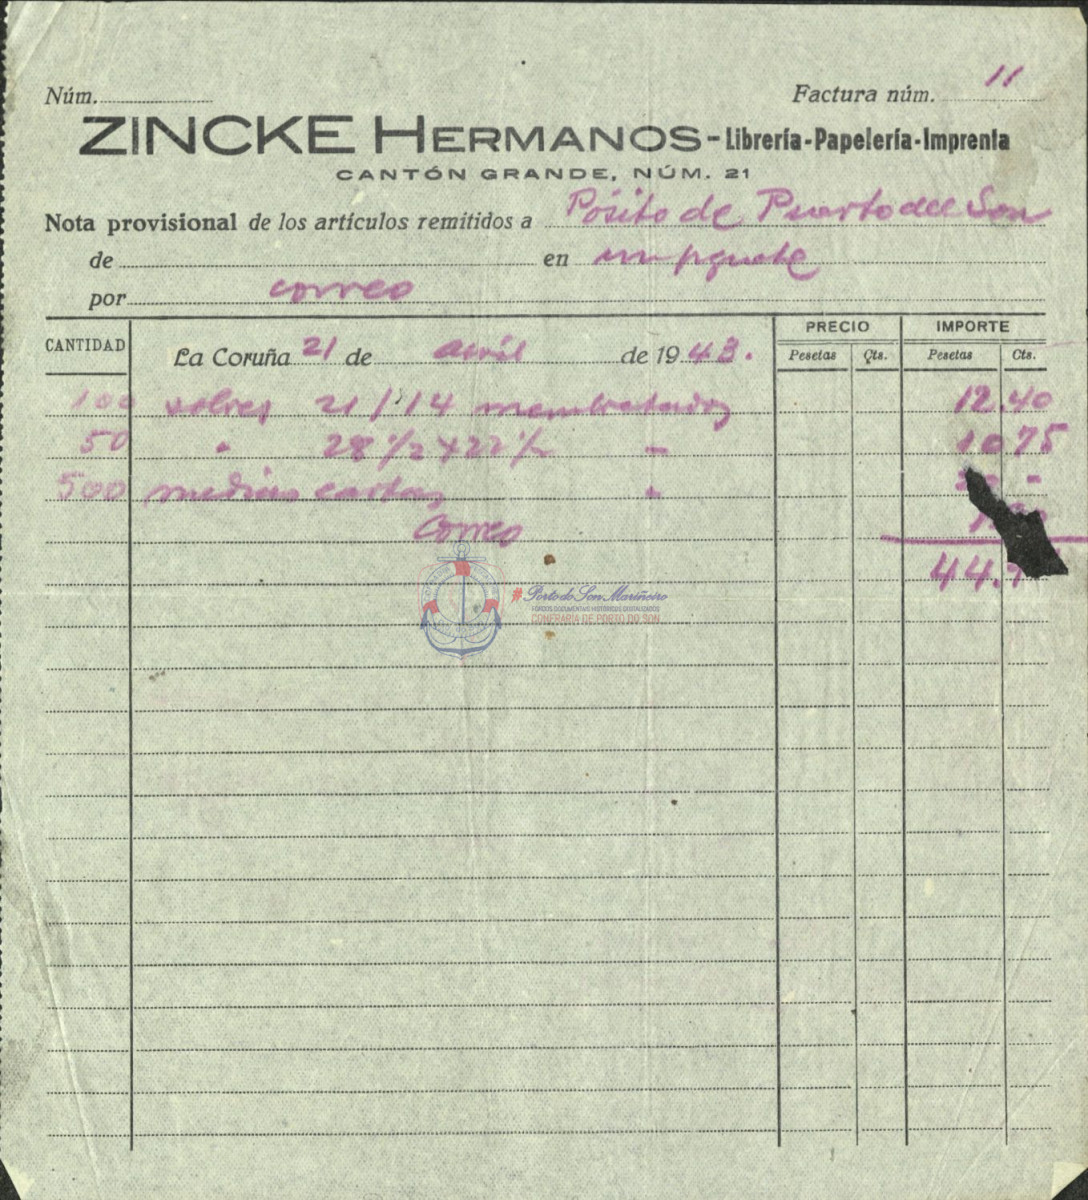 Núm.
Factura núm. 11
ZINCKE HERMANOS - Librería - Papelería - Imprenta
CANTÓN GRANDE, NÚM. 21
Nota provisional de los artículos remitidos a Pósito de Puerto del Son
de en un pquete
por correo
CANTIDAD
PRECIO IMPORTE
La Coruña 21 de abril de 1943.
Pesetas Cts. Pesetas Cts.
100 sobres 21/14 membretados 12.40
50 " 28 1/2 x 22 1/2 " 10 75
500 medias cartas " -
Correo
44.
#Porto do Son Mariñeiro
FONDOS DOCUMENTAIS HISTÓRICOS DIGITALIZADOS
CONFRARÍA DE PORTO DO SON